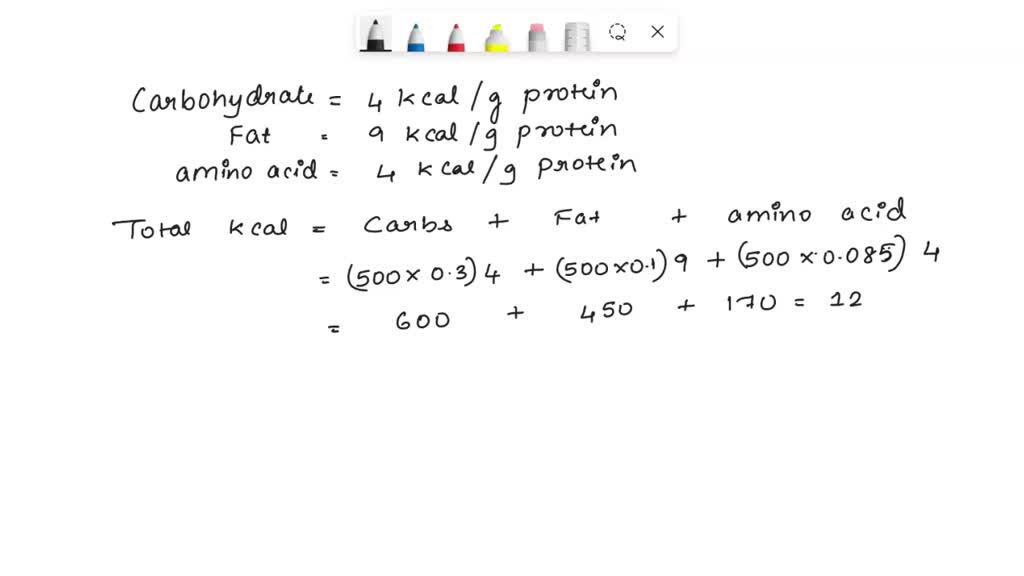 Carbohydrate = 4 kcal/g protein
Fat = 9 kcal/g protein
amino acid = 4 kcal/g protein
Total kcal = Carbs + Fat + amino acid
= (500 × 0.3) 4 + (500 × 0.1) 9 + (500 × 0.085) 4
= 600 + 450 + 170 = 12